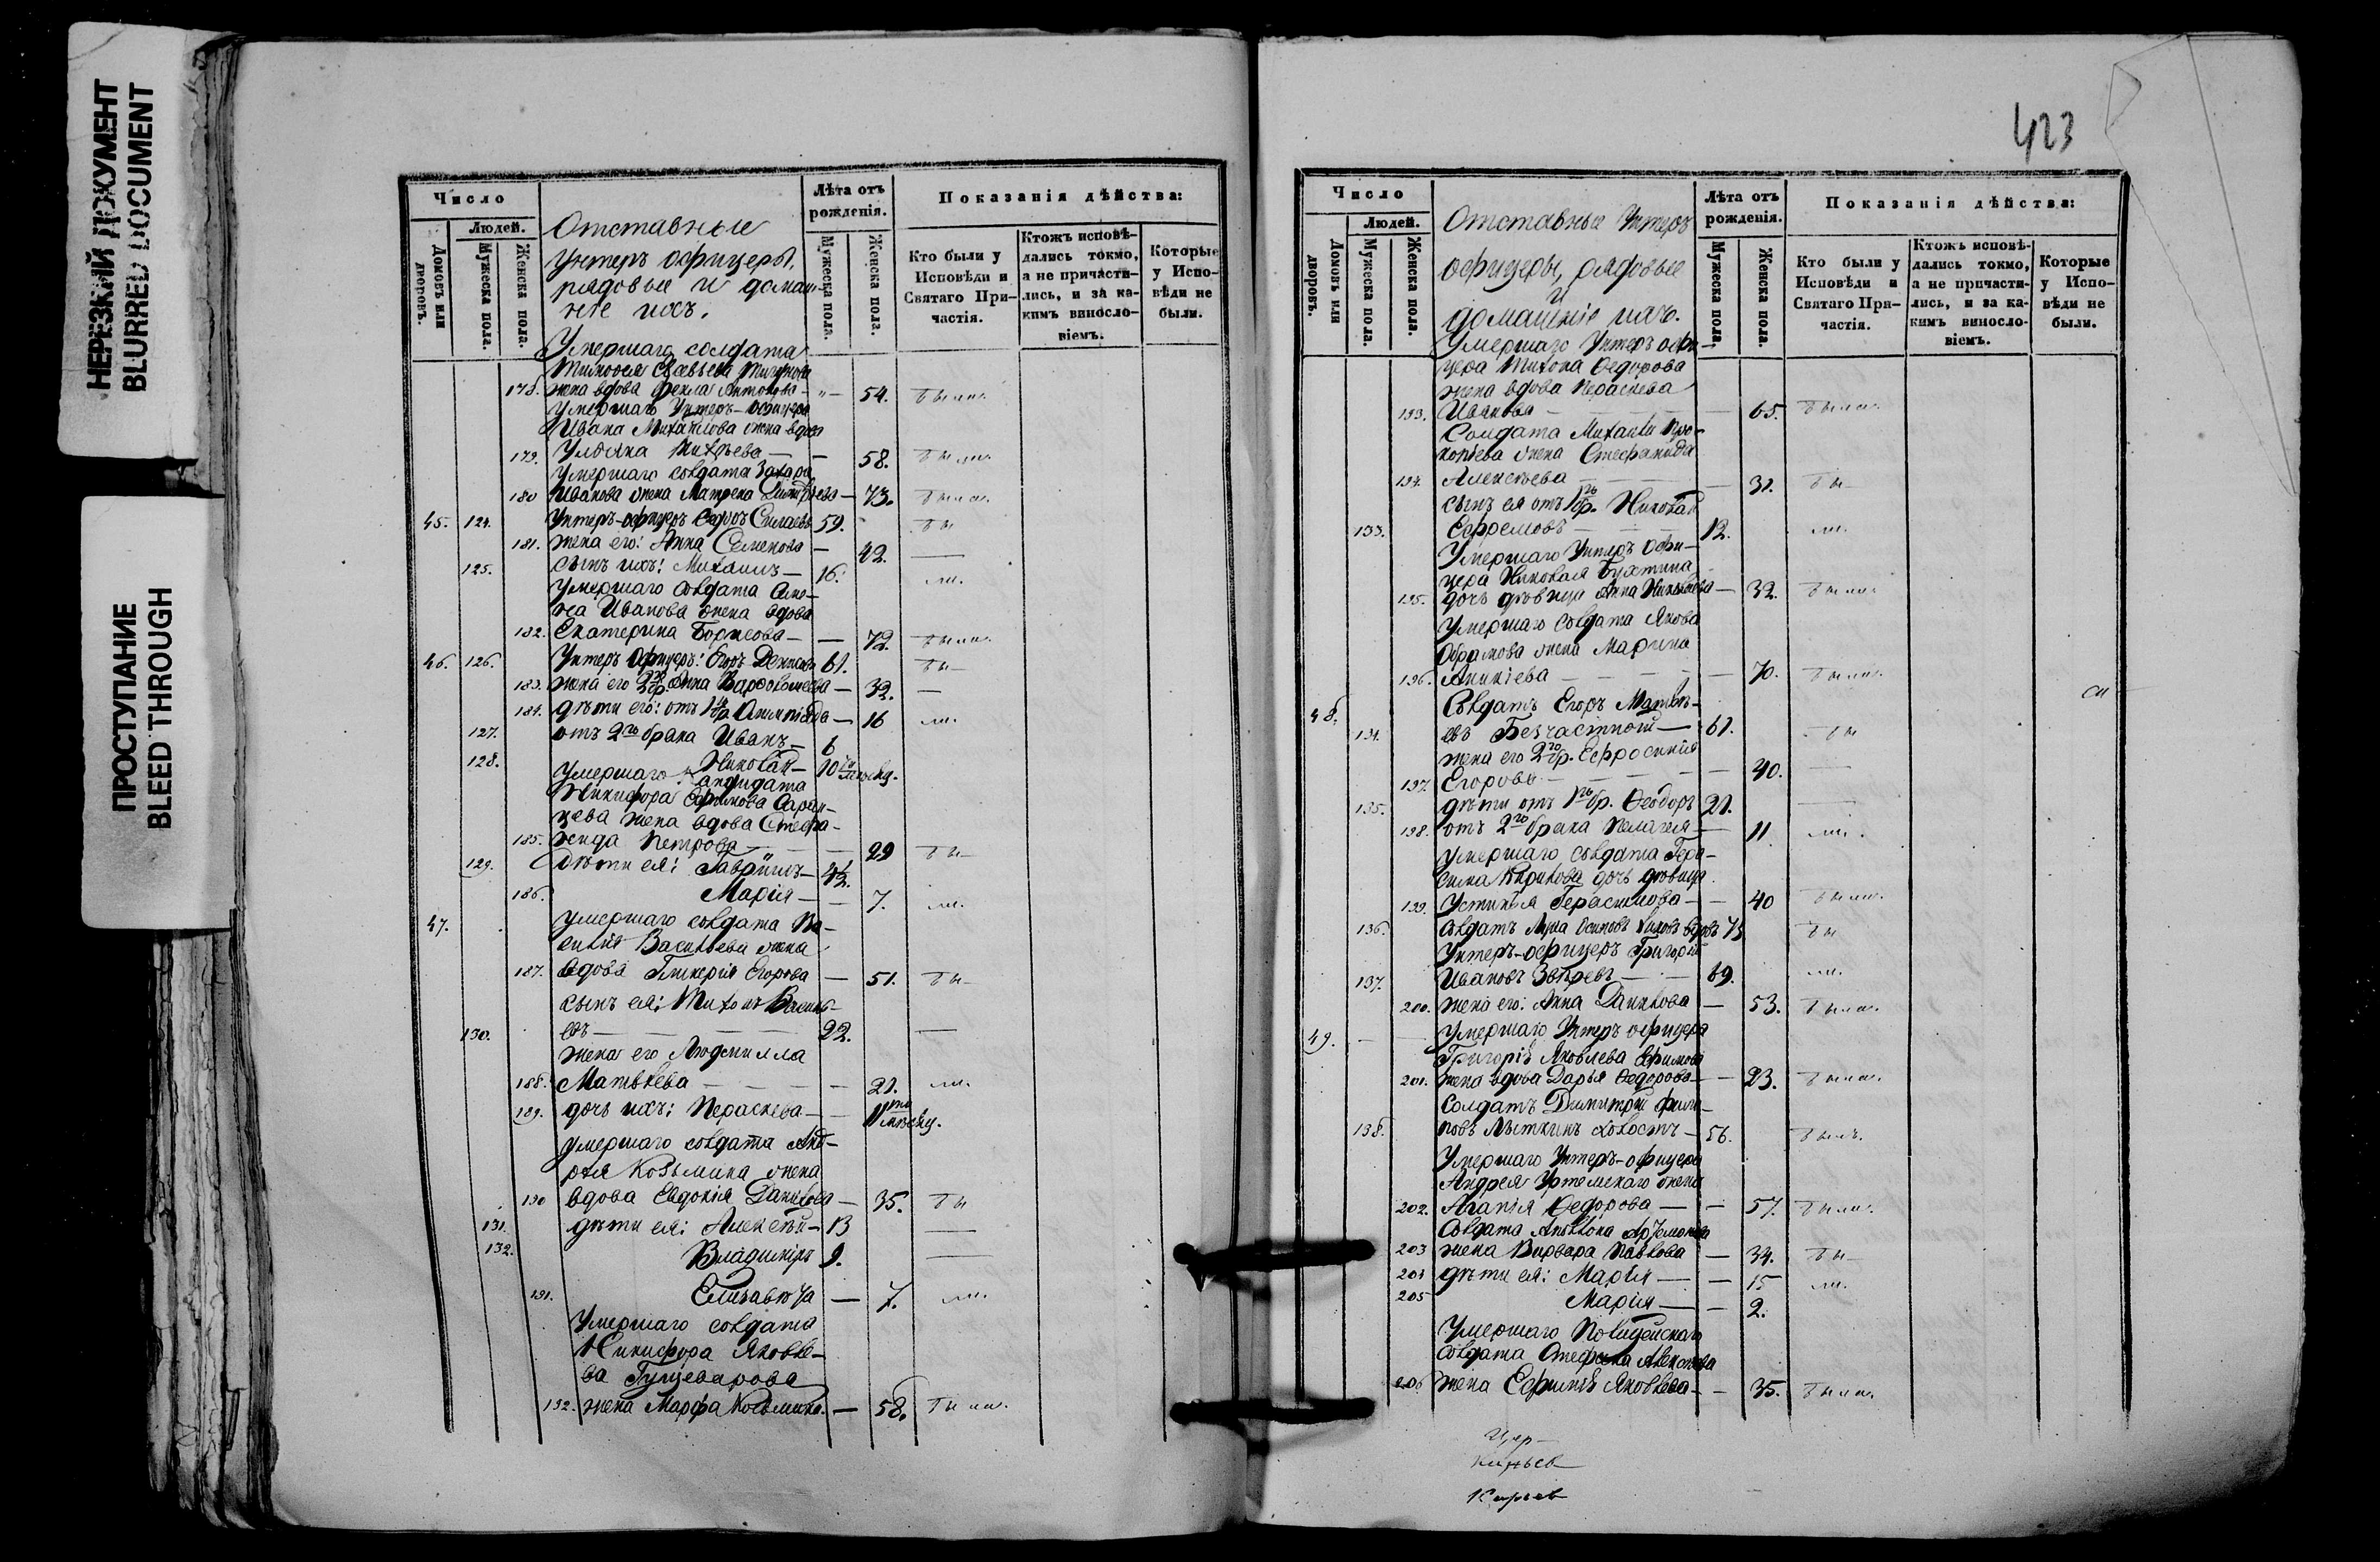 НЕРЕЗКИЙ ДОКУМЕНТ
BLURRED DOCUMENT
ПРОСТУПАНИЕ
BLEED THROUGH
Число
Людей.
Домовъ или дворовъ.
Мужеска пола.
Женска пола.
Отставные
унтеръ офицеры,
рядовые и домаш-
ніе ихъ.
Лѣта отъ рожденія.
Мужеска пола.
Женска пола.
Показанія дѣйства:
Кто были у Исповѣди и Святаго При-частія.
Ктожъ исповѣ-дались токмо, а не причасти-лись, и за ка-кимъ винослo-віемъ.
Которые у Испо-вѣди не были.
Умершаго солдата
178. жена вдова Фекла Антонова — 54. были.
Умершаго Унтеръ-офицера
Ивана Михайлова жена вдова
179. Ульяна — — 58. были.
Умершаго солдата Захара
180 Иванова жена Матрена — 73. были.
45. 124. Унтеръ-офицеръ 59. бы
181. жена его: Анна Семенова — 42. —
125. сынъ ихъ: Михаилъ — 16. ли.
Умершаго солдата
Иванова жена вдова
182. Екатерина Борисова — — 72. были.
46. 126. Унтеръ Офицеръ: Егоръ 61. бы—
183. жена его 2го бр. Анна — 32. —
184. дѣти его: отъ 1го бр. — 16 ли.
127. отъ 2го брака Иванъ — 6
128. Николай — 10
Умершаго
Никифора
жена вдова Стефа-
185. нида Петрова — — 29 бы—
129. дѣти ея: Гавріилъ —
186. Марія — — 7. ли.
47. умершаго солдата Ва-
силія Васильева жена
187. вдова Гликерія Егорова — 51. бы—
сынъ ея: Тихонъ Василь-
130. евъ — — — — 22. —
жена его Людмилла
188. Матвѣева — — — — 21. ли.
189. дочь ихъ: Пераскева — — 11 мѣсяц.
умершаго солдата Анд-
рея Козьмина жена
190 вдова Евдокія Данилова — 35. бы
131. дѣти ея: Алексѣй — 13 —
132. Владиміръ 9. —
191. Елизавета — 7. ли.
Умершаго солдата
Никифора Яковле-
ва
192. жена Марфа Козьмина. — 58. были.
423
Число
Людей.
Домовъ или дворовъ.
Мужеска пола.
Женска пола.
Отставные Унтеръ
офицеры, рядовые
и
домашніе ихъ.
Лѣта отъ рожденія.
Мужеска пола.
Женска пола.
Показанія дѣйства:
Кто были у Исповѣди и Святаго При-частія.
Ктожъ исповѣ-дались токмо, а не причасти-лись, и за ка-кимъ винослo-віемъ.
Которые у Испо-вѣди не были.
Умершаго Унтеръ офи-
цера Тихона Ѳедорова
жена вдова Пераскева
193. Иванова — — 65. были.
Солдата Михаила Про-
копіева жена Стефанида
194. Алексѣева — — — 31. бы—
сынъ ея отъ 1го бр. Николай
133. Ефремовъ — — — 12. ли.
Умершаго Унтеръ Офи-
цера Николая
195. дочь дѣвица Анна Николаева — 32. были
Умершаго солдата Якова
жена Марина
196. Аникіева — — — 70. были.
48. Солдатъ Егоръ Матвѣ-
134. евъ Безчастной — 61. бы
жена его 2го бр. Ефросинія
197. Егорова — — — 40. —
135. дѣти отъ 1го бр. Ѳеодоръ 21. —
198. отъ 2го брака Пелагея — 11. ли.
умершаго солдата Гера-
сима дочь дѣвица
199. Устинія Герасимова — — 40 были.
136. Солдатъ вдовъ 73 бы
Унтеръ-офицеръ Григорій
137. Ивановъ Звѣревъ — — 69. ли.
200. жена его: Анна Данилова — 53. были.
49. Умершаго Унтеръ офицера
Григорія Яковлева Ефимова
201. жена вдова Дарья Ѳедорова — — 23. были.
Солдатъ Димитрій Фили-
138. повъ холостъ — 56. былъ.
Умершаго Унтеръ-офицера
Андрея жена
202. Агапія Ѳедорова — — 57. были.
Солдата
203 жена Варвара Павлова — 34. бы—
204 дѣти ея: Марія — — 15 ли.
205 Марія — — 2.
Умершаго Полицейскаго
солдата Стефана Алексѣева
206 жена Ефимія Яковлева — — 35. были.